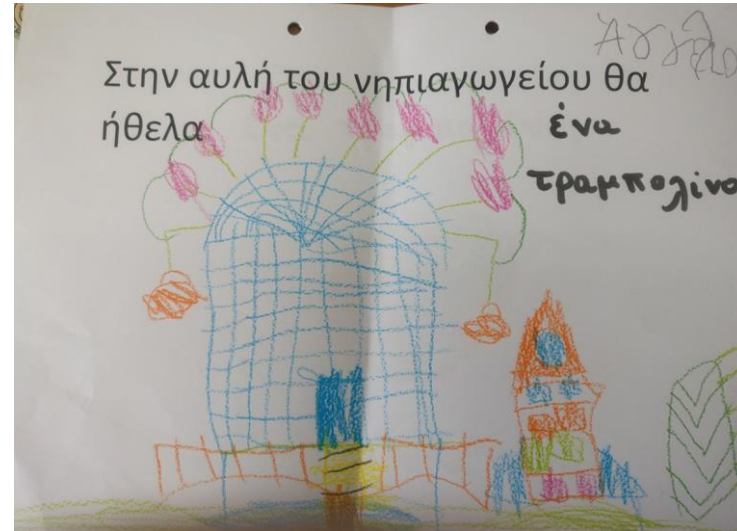 Άγγελο
Στην αυλή του νηπιαγωγείου θα
ήθελα ένα
τραμπολίνο